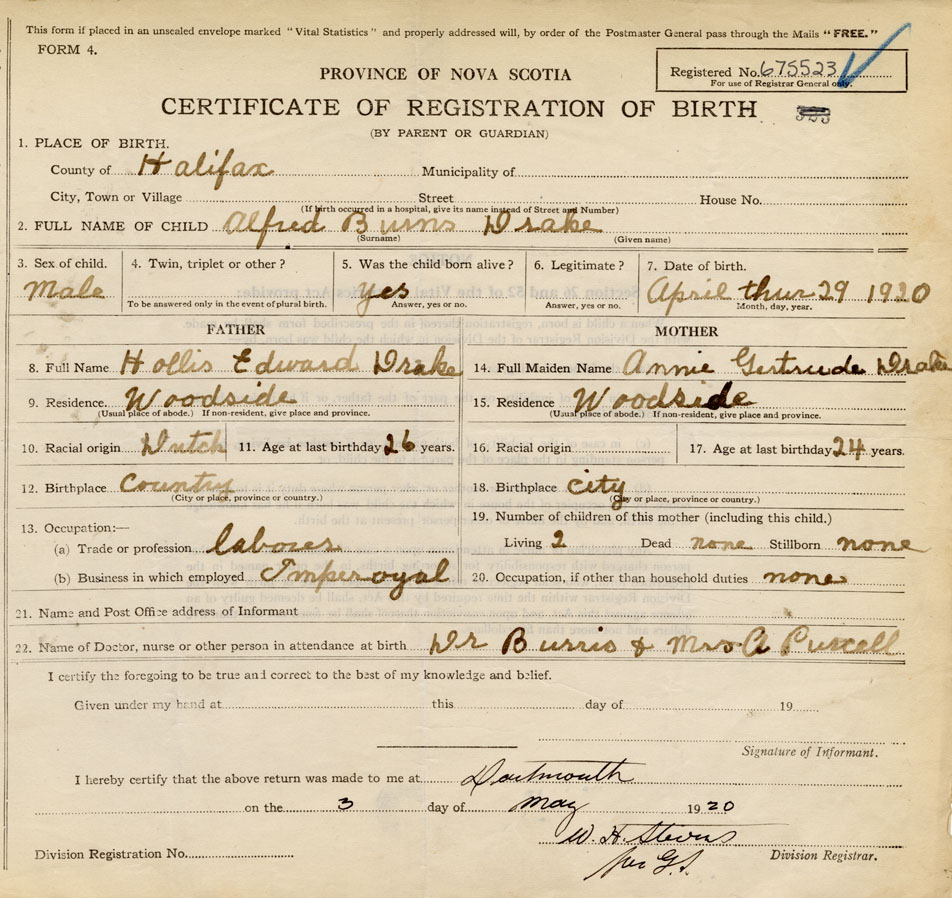 This form if placed in an unsealed envelope marked "Vital Statistics" and properly addressed will, by order of the Postmaster General pass through the Mails "FREE."
FORM 4.
Registered No. 675523
For use of Registrar General only.
PROVINCE OF NOVA SCOTIA
CERTIFICATE OF REGISTRATION OF BIRTH
(BY PARENT OR GUARDIAN)
1. PLACE OF BIRTH.
County of Halifax Municipality of
City, Town or Village Street House No.
(If birth occurred in a hospital, give its name instead of Street and Number)
2. FULL NAME OF CHILD Alfred Burns Drake
(Surname) (Given name)
3. Sex of child. 4. Twin, triplet or other? 5. Was the child born alive? 6. Legitimate? 7. Date of birth.
Male yes April thur 29 1920
To be answered only in the event of plural birth. Answer, yes or no. Answer, yes or no. Month, day, year.
FATHER MOTHER
8. Full Name Hollis Edward Drake 14. Full Maiden Name Annie Gertrude Drake
9. Residence. Woodside 15. Residence Woodside
(Usual place of abode.) If non-resident, give place and province. (Usual place of abode.) If non-resident, give place and province.
10. Racial origin Dutch 11. Age at last birthday 26 years. 16. Racial origin 17. Age at last birthday 24 years.
12. Birthplace Country 18. Birthplace city
(City or place, province or country.) (City or place, province or country.)
13. Occupation:— 19. Number of children of this mother (including this child.)
(a) Trade or profession laborer Living 2 Dead none Stillborn none
(b) Business in which employed Imperoyal 20. Occupation, if other than household duties none
21. Name and Post Office address of Informant
22. Name of Doctor, nurse or other person in attendance at birth Dr Burris & Mrs A Purcell
I certify the foregoing to be true and correct to the best of my knowledge and belief.
Given under my hand at this day of 19
Signature of Informant.
I hereby certify that the above return was made to me at Dartmouth
on the 3 day of May 1920
W. H. Stevens
per G.S.
Division Registration No. Division Registrar.